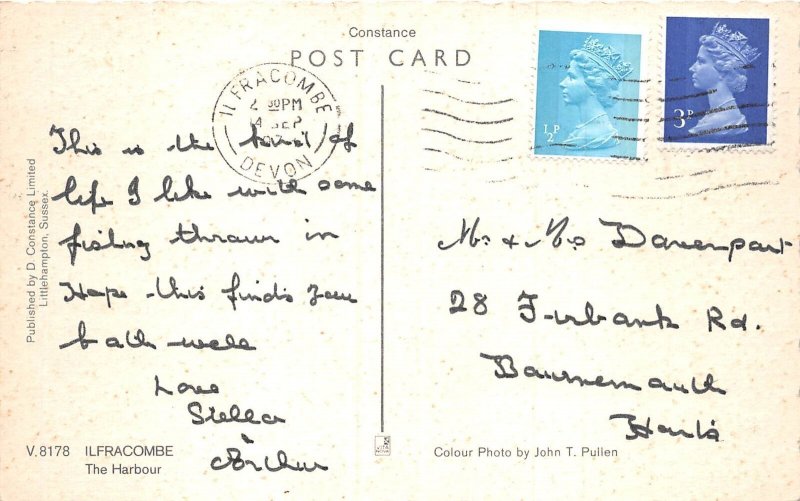 Constance
POST CARD
ILFRACOMBE
30PM
14 SEP
DEVON
½P
3P
This is the kind of
life I like with some
fishing thrown in
Hope this finds you
both well
Love
Stella
&
Arthur
Mr & Mrs Davenport
28 Firbank Rd.
Bournemouth
Hants
Published by D. Constance Limited
Littlehampton, Sussex.
V.8178 ILFRACOMBE
The Harbour
Colour Photo by John T. Pullen